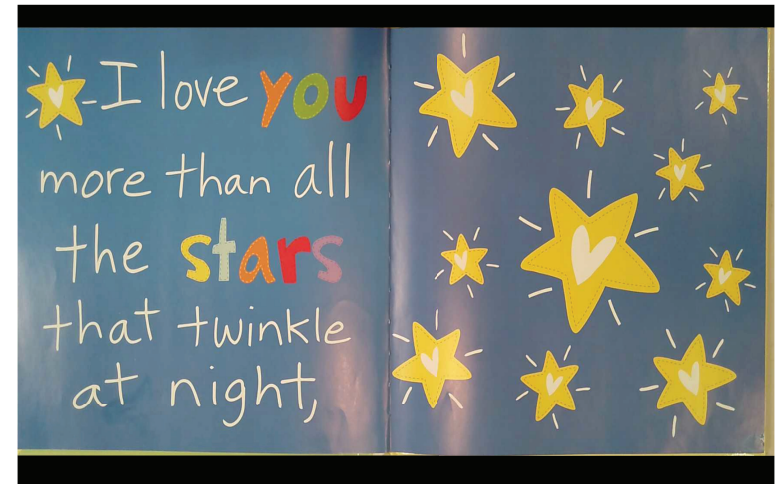 I love you
more than all
the stars
that twinkle
at night,